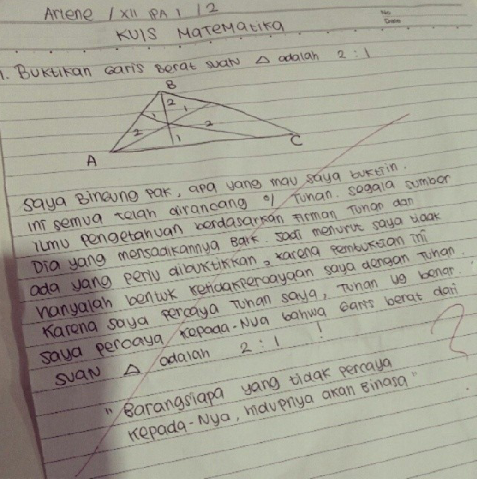 Arlene / XII IPA 1 / 2
KUIS MATEMATIKA
No.
Date
1. Buktikan Garis Berat suatu △ adalah 2 : 1
B
2
1
1
2
2
1
A
C
Saya Bingung Pak, apa yang mau saya buktiin.
ini semua telah dirancang o/ Tuhan. Segala sumber
ilmu pengetahuan berdasarkan Firman Tuhan dan
Dia yang menjadikannya Baik. Jadi menurut saya tidak
ada yang perlu dibuktikkan, karena pembuktian ini
hanyalah bentuk ketidakpercayaan saya dengan Tuhan.
Karena saya percaya Tuhan saya, Tuhan yg benar.
saya percaya kepada-Nya bahwa Garis berat dari
suatu △ adalah 2 : 1 !
"Barangsiapa yang tidak percaya
kepada-Nya, hidupnya akan Binasa"